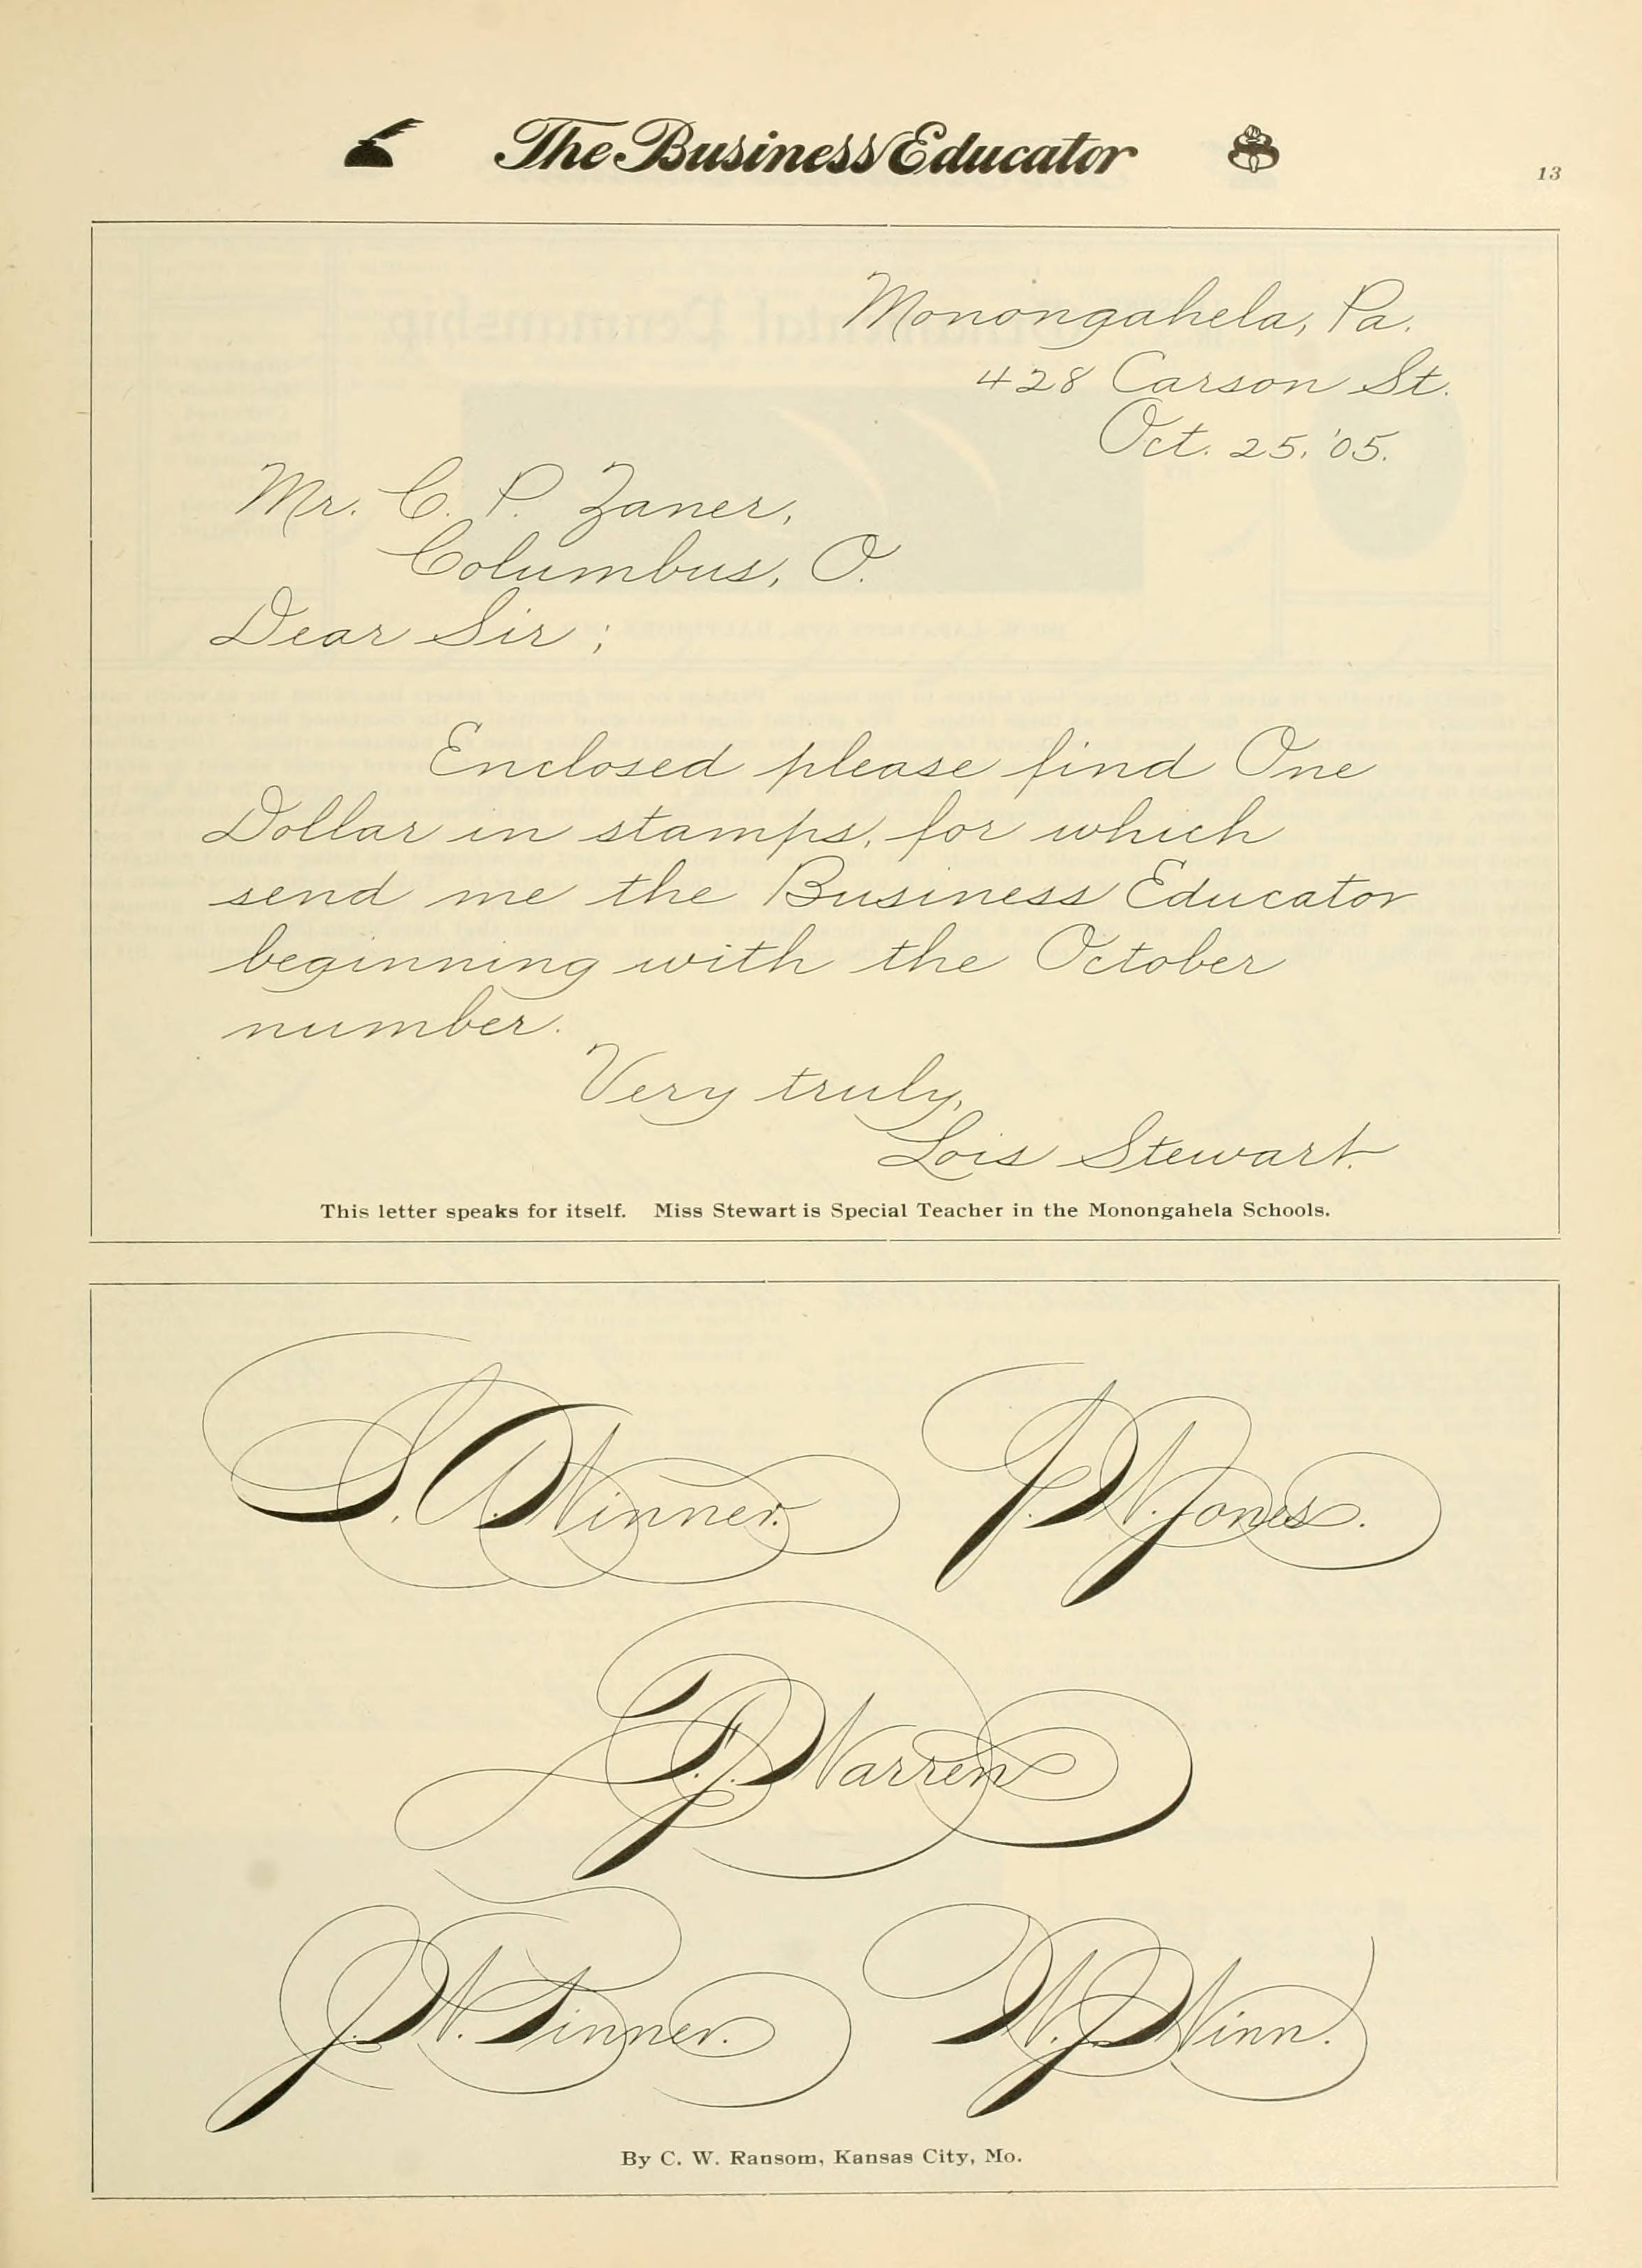 The Business Educator
13
Monongahela, Pa.
428 Carson St.
Oct. 25, '05.
Mr. C. P. Zaner,
Columbus, O.
Dear Sir ;
Enclosed please find One
Dollar in stamps, for which
send me the Business Educator
beginning with the October
number.
Very truly,
Lois Stewart.
This letter speaks for itself. Miss Stewart is Special Teacher in the Monongahela Schools.
S. A. Winner. J. W. Jones.
Warren
J. W. Tinner. W. J. Winn.
By C. W. Ransom, Kansas City, Mo.